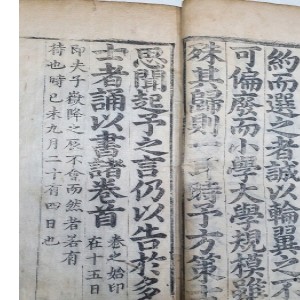 約而選之者誠以輪翼之不
可偏廢而小學大學規模雖
殊其歸則一時予方
思聞起予之言仍以告於多
士者誦以書諸卷首
之始印
在十五日
即夫子嶽降之辰不會而然者若有
待也時己未九月二十有四日也